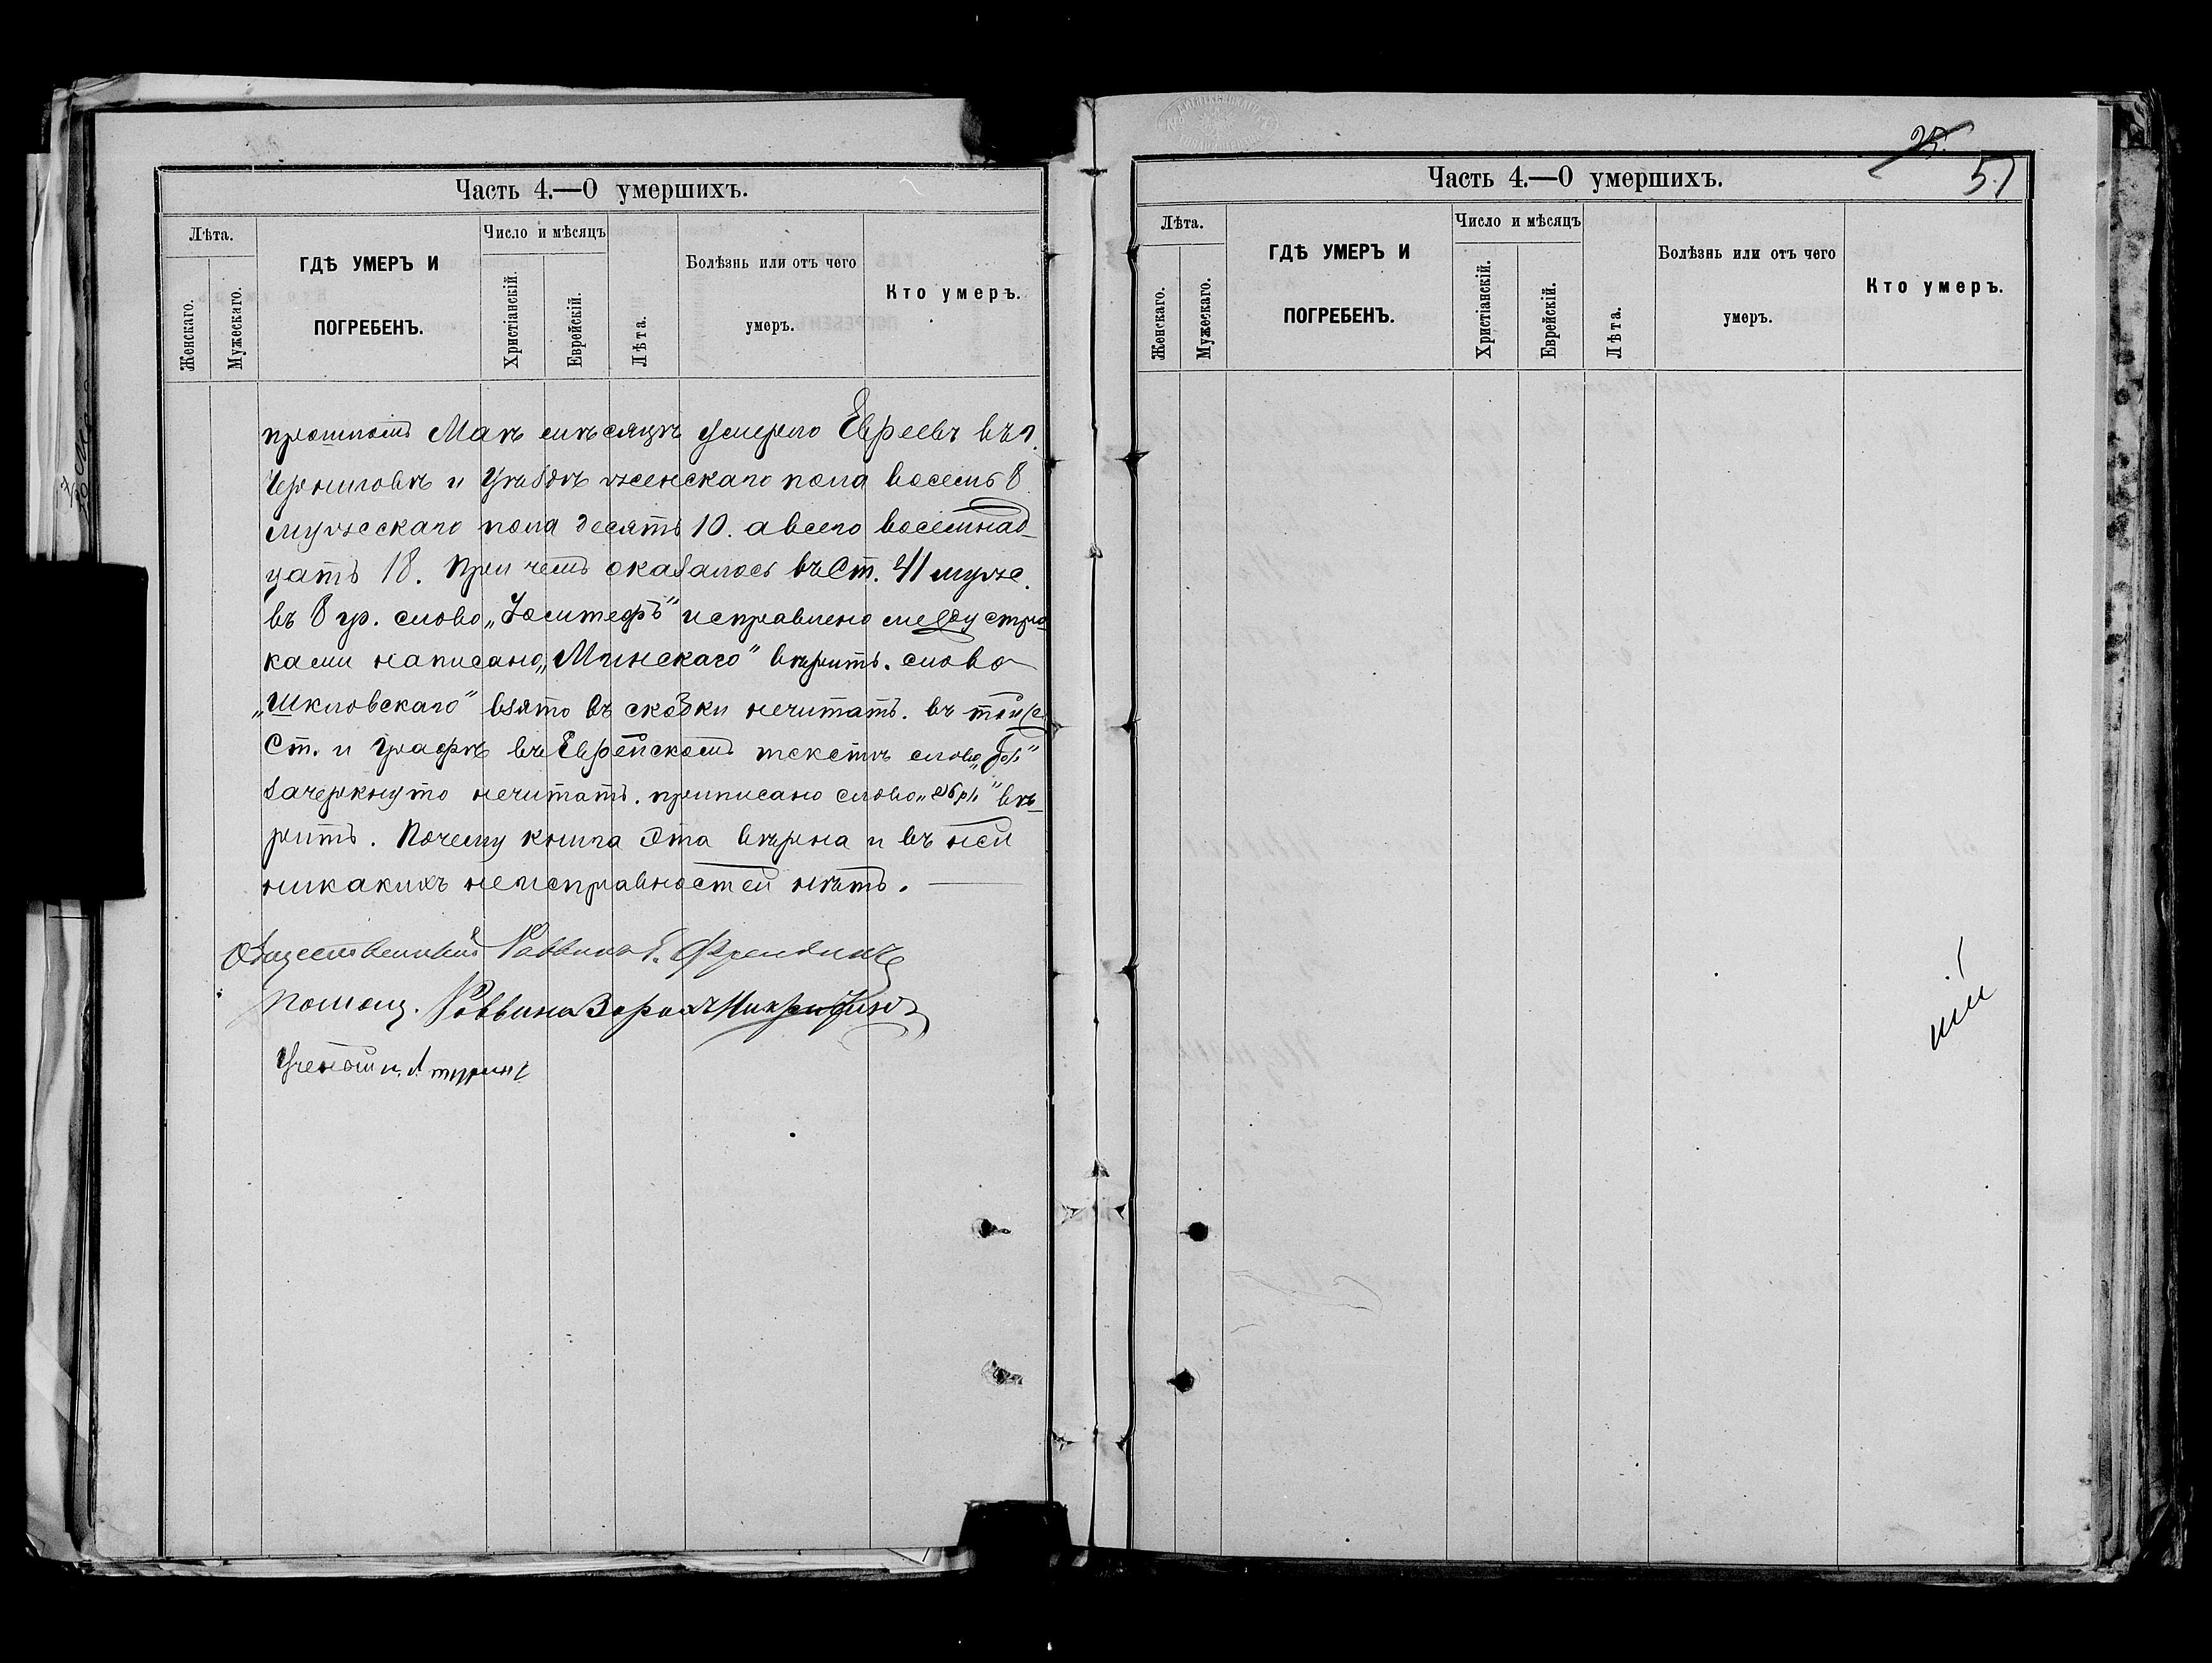 Часть 4.—О умершихъ.
Лѣта.
Женскаго.
Мужескаго.
ГДѢ УМЕРЪ И
ПОГРЕБЕНЪ.
Число и мѣсяцъ
Христіанскій.
Еврейскій.
Лѣта.
Болѣзнь или отъ чего
умеръ.
Кто умеръ.
прошломъ Маѣ мѣсяцѣ умерло Евреевъ въ г.
Черниговѣ и Уѣздѣ женскаго пола восемь 8
мужескаго пола десять 10. а всего восемнад-
цать 18. При чемъ оказалось въ Ст. 41 муже.
въ 8 гр. слово „ исправлено между стро-
ками написано „Минскаго" вѣрить. слово
„Шкловскаго" взято въ скобки нечитать. въ той же
Ст. и графѣ въ Еврейскомъ текстѣ слово
зачеркнуто нечитать. приписано слово вѣ-
рить. Почему книга эта вѣрна и въ ней
никакихъ неисправностей нѣтъ. —
Общественный Раввинъ
Помощ. Раввина
Часть 4.—О умершихъ.
25.
51
Лѣта.
Женскаго.
Мужескаго.
ГДѢ УМЕРЪ И
ПОГРЕБЕНЪ.
Число и мѣсяцъ
Христіанскій.
Еврейскій.
Лѣта.
Болѣзнь или отъ чего
умеръ.
Кто умеръ.